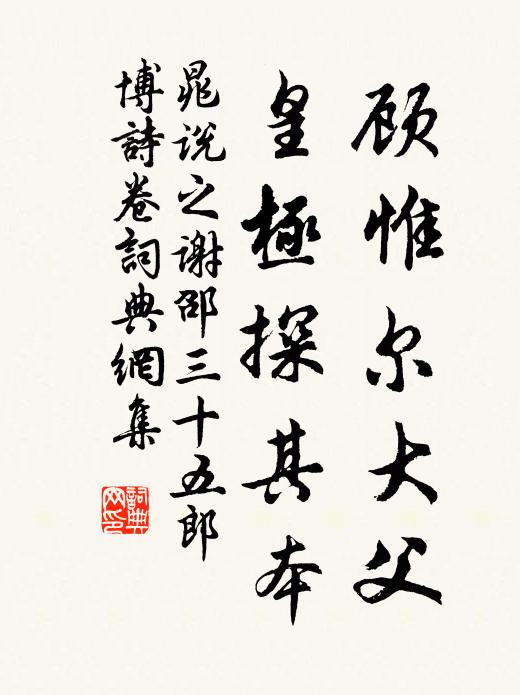 顾惟尔大父
皇極探其本
晁说之谢邵三十五郎
博詩卷詞典網集
詞典
网印